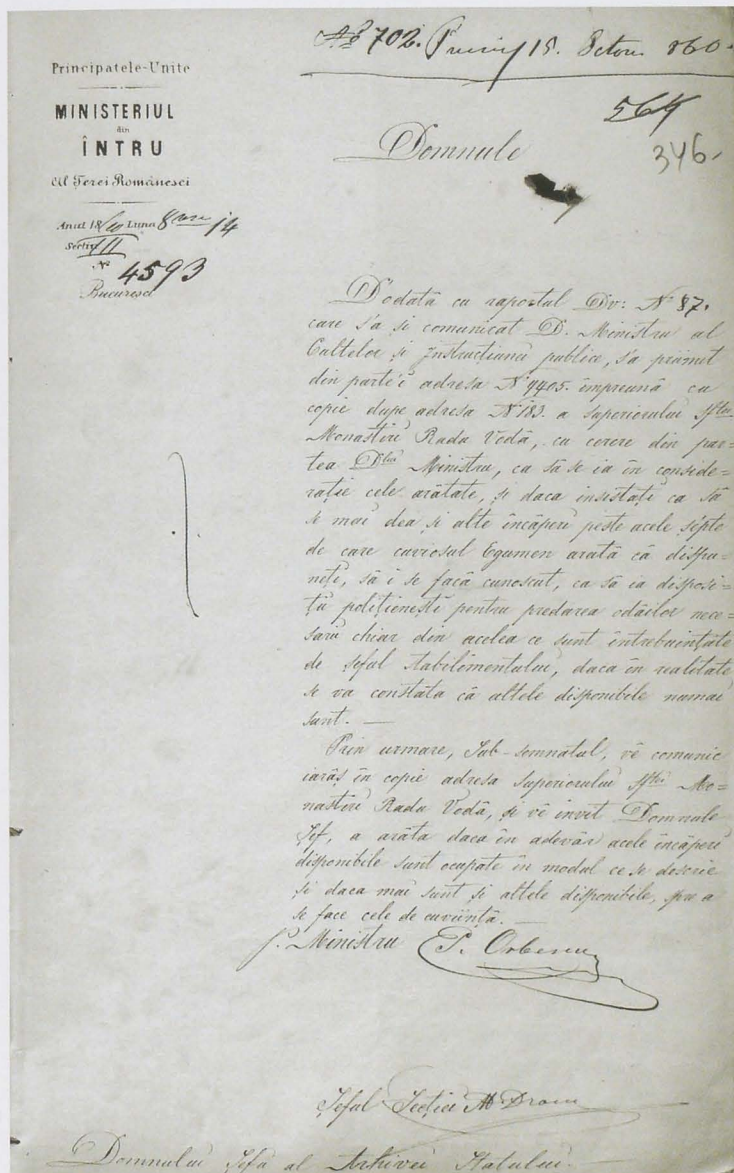 No 702. Primit 15. Octom. 860.
564
346.
Principatele-Unite
MINISTERIUL
din
ÎNTRU
Al Țerei Românesci
Anul 18/60 Luna 8vre 14
Secția III
No 4593
Bucuresci
Domnule
D'odată cu raportul Dv: No 87.
care s'a și comunicat D. Ministru al
Cultelor și Instrucțiunii publice, s'a primit
din parte'i adresa No 9405. împreună cu
copie dupe adresa No 183. a superiorului sftei
Monastiri Radu Vodă, cu cerere din par=
tea Dlui Ministru, ca să se ia în conside=
rație cele arătate, și daca insistați ca să
se mai dea și alte încăperi peste acele șépte
de care cuviosul Egumen arată că dispu=
neți, să i se facă cunoscut, ca să ia disposi=
ții polițienești pentru predarea odăilor nece=
sarii chiar din acelea ce sunt întrebuințate
de șeful stabilimentului, daca în realitate
se va constata că altele disponibile numai
sunt. —
Prin urmare, Sub-semnatul, vĕ comunic
iarăș în copie adresa superiorului sftei Mo=
nastiri Radu Vodă, și vĕ invit Domnule
Șef, a arăta daca în adevăr acele încăperi
disponibile sunt ocupate în modul ce se descrie
și daca mai sunt și altele disponibile, spre a
se face cele de cuviință.
p. Ministru
Șeful Secției
Domnului Șefu al Arhivei Statului